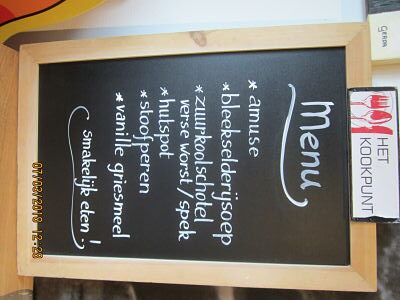 GERDA
HET
KOOKPUNT
Menu
* amuse
* bleekselderijsoep
* zuurkoolschotel
verse worst/spek
* hutspot
* stoofperen
* vanille griesmeel
smakelijk eten!
07/03/2010 12:28